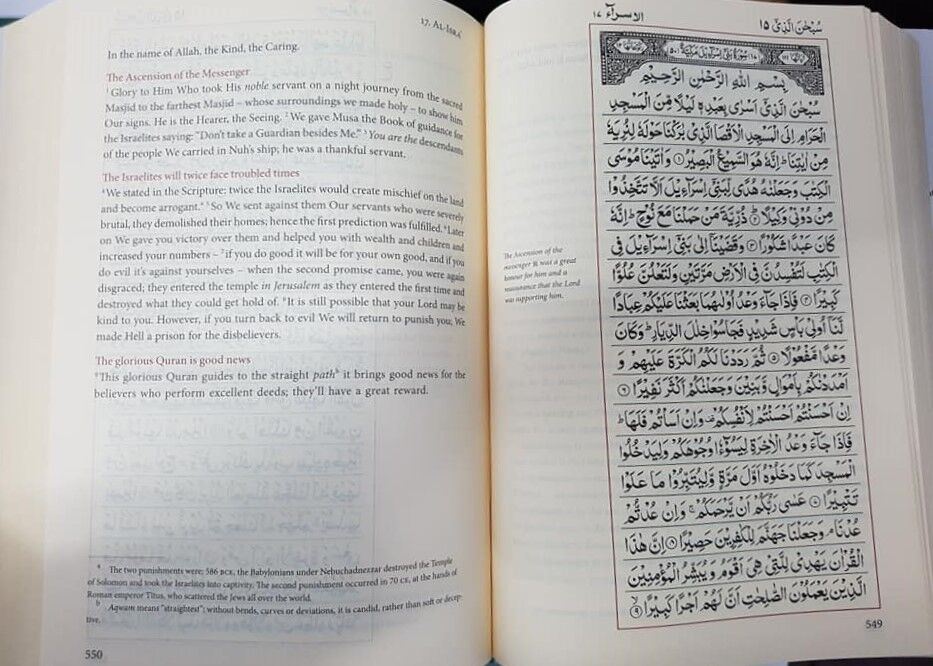 17. AL-ISRA'
In the name of Allah, the Kind, the Caring.
The Ascension of the Messenger
¹Glory to Him Who took His noble servant on a night journey from the sacred
Masjid to the farthest Masjid – whose surroundings we made holy – to show him
Our signs. He is the Hearer, the Seeing. ²We gave Musa the Book of guidance for
the Israelites saying: "Don't take a Guardian besides Me." ³You are the descendants
of the people We carried in Nuh's ship; he was a thankful servant.
The Israelites will twice face troubled times
⁴We stated in the Scripture: twice the Israelites would create mischief on the land
and become arrogant.ᵃ ⁵So We sent against them Our servants who were severely
brutal, they demolished their homes; hence the first prediction was fulfilled. ⁶Later
on We gave you victory over them and helped you with wealth and children and
increased your numbers – ⁷if you do good it will be for your own good, and if you
do evil it's against yourselves – when the second promise came, you were again
disgraced; they entered the temple in Jerusalem as they entered the first time and
destroyed what they could get hold of. ⁸It is still possible that your Lord may be
kind to you. However, if you turn back to evil We will return to punish you; We
made Hell a prison for the disbelievers.
The glorious Quran is good news
⁹This glorious Quran guides to the straight pathᵇ it brings good news for the
believers who perform excellent deeds; they'll have a great reward.
ᵃ The two punishments were; 586 BCE, the Babylonians under Nebuchadnezzar destroyed the Temple
of Solomon and took the Israelites into captivity. The second punishment occurred in 70 CE, at the hands of
Roman emperor Titus, who scattered the Jews all over the world.
ᵇ Aqwam means "straightest"; without bends, curves or deviations, it is candid, rather than soft or decep-
tive.
550
سُبْحٰنَ الَّذِيْٓ ١٥
الاسراء ١٧
بِسْمِ اللهِ الرَّحْمٰنِ الرَّحِيْمِ
سُبْحٰنَ الَّذِيْٓ اَسْرٰى بِعَبْدِهٖ لَيْلًا مِّنَ الْمَسْجِدِ
الْحَرَامِ اِلَى الْمَسْجِدِ الْاَقْصَا الَّذِيْ بٰرَكْنَا حَوْلَهٗ لِنُرِيَهٗ
مِنْ اٰيٰتِنَا ؕ اِنَّهٗ هُوَ السَّمِيْعُ الْبَصِيْرُ ١ وَاٰتَيْنَا مُوْسَى
الْكِتٰبَ وَجَعَلْنٰهُ هُدًى لِّبَنِيْٓ اِسْرَآءِيْلَ اَلَّا تَتَّخِذُوْا
مِنْ دُوْنِيْ وَكِيْلًا ٢ ذُرِّيَّةَ مَنْ حَمَلْنَا مَعَ نُوْحٍ ؕ اِنَّهٗ
كَانَ عَبْدًا شَكُوْرًا ٣ وَقَضَيْنَآ اِلٰى بَنِيْٓ اِسْرَآءِيْلَ فِي
الْكِتٰبِ لَتُفْسِدُنَّ فِي الْاَرْضِ مَرَّتَيْنِ وَلَتَعْلُنَّ عُلُوًّا
كَبِيْرًا ٤ فَاِذَا جَآءَ وَعْدُ اُوْلٰىهُمَا بَعَثْنَا عَلَيْكُمْ عِبَادًا
لَّنَآ اُولِيْ بَاْسٍ شَدِيْدٍ فَجَاسُوْا خِلٰلَ الدِّيَارِ ؕ وَكَانَ
وَعْدًا مَّفْعُوْلًا ٥ ثُمَّ رَدَدْنَا لَكُمُ الْكَرَّةَ عَلَيْهِمْ وَ
اَمْدَدْنٰكُمْ بِاَمْوَالٍ وَّبَنِيْنَ وَجَعَلْنٰكُمْ اَكْثَرَ نَفِيْرًا ٦
اِنْ اَحْسَنْتُمْ اَحْسَنْتُمْ لِاَنْفُسِكُمْ ۫ وَاِنْ اَسَاْتُمْ فَلَهَا ؕ
فَاِذَا جَآءَ وَعْدُ الْاٰخِرَةِ لِيَسُوْٓءٗا وُجُوْهَكُمْ وَلِيَدْخُلُوا
الْمَسْجِدَ كَمَا دَخَلُوْهُ اَوَّلَ مَرَّةٍ وَّلِيُتَبِّرُوْا مَا عَلَوْا
تَتْبِيْرًا ٧ عَسٰى رَبُّكُمْ اَنْ يَّرْحَمَكُمْ ۚ وَاِنْ عُدْتُّمْ
عُدْنَا ۘ وَجَعَلْنَا جَهَنَّمَ لِلْكٰفِرِيْنَ حَصِيْرًا ٨ اِنَّ هٰذَا
الْقُرْاٰنَ يَهْدِيْ لِلَّتِيْ هِيَ اَقْوَمُ وَيُبَشِّرُ الْمُؤْمِنِيْنَ
الَّذِيْنَ يَعْمَلُوْنَ الصّٰلِحٰتِ اَنَّ لَهُمْ اَجْرًا كَبِيْرًا ٩
The Ascension of the
messenger ﷺ was a great
honour for him and a
reassurance that the Lord
was supporting him.
549